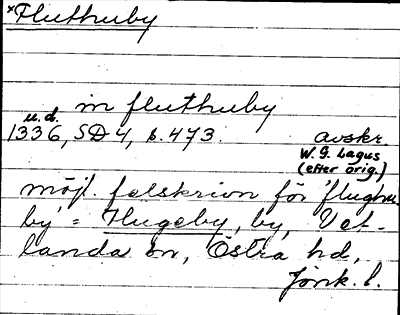 *Fluthuby
in fluthuby
u.d.
1336, SD 4, s. 473. avskr.
W. G. Lagus
(efter orig.)
möjl. felskrivn för 'flughu
by' = Flugeby, by, Vet-
landa sn, Östra hd,
Jönk. l.